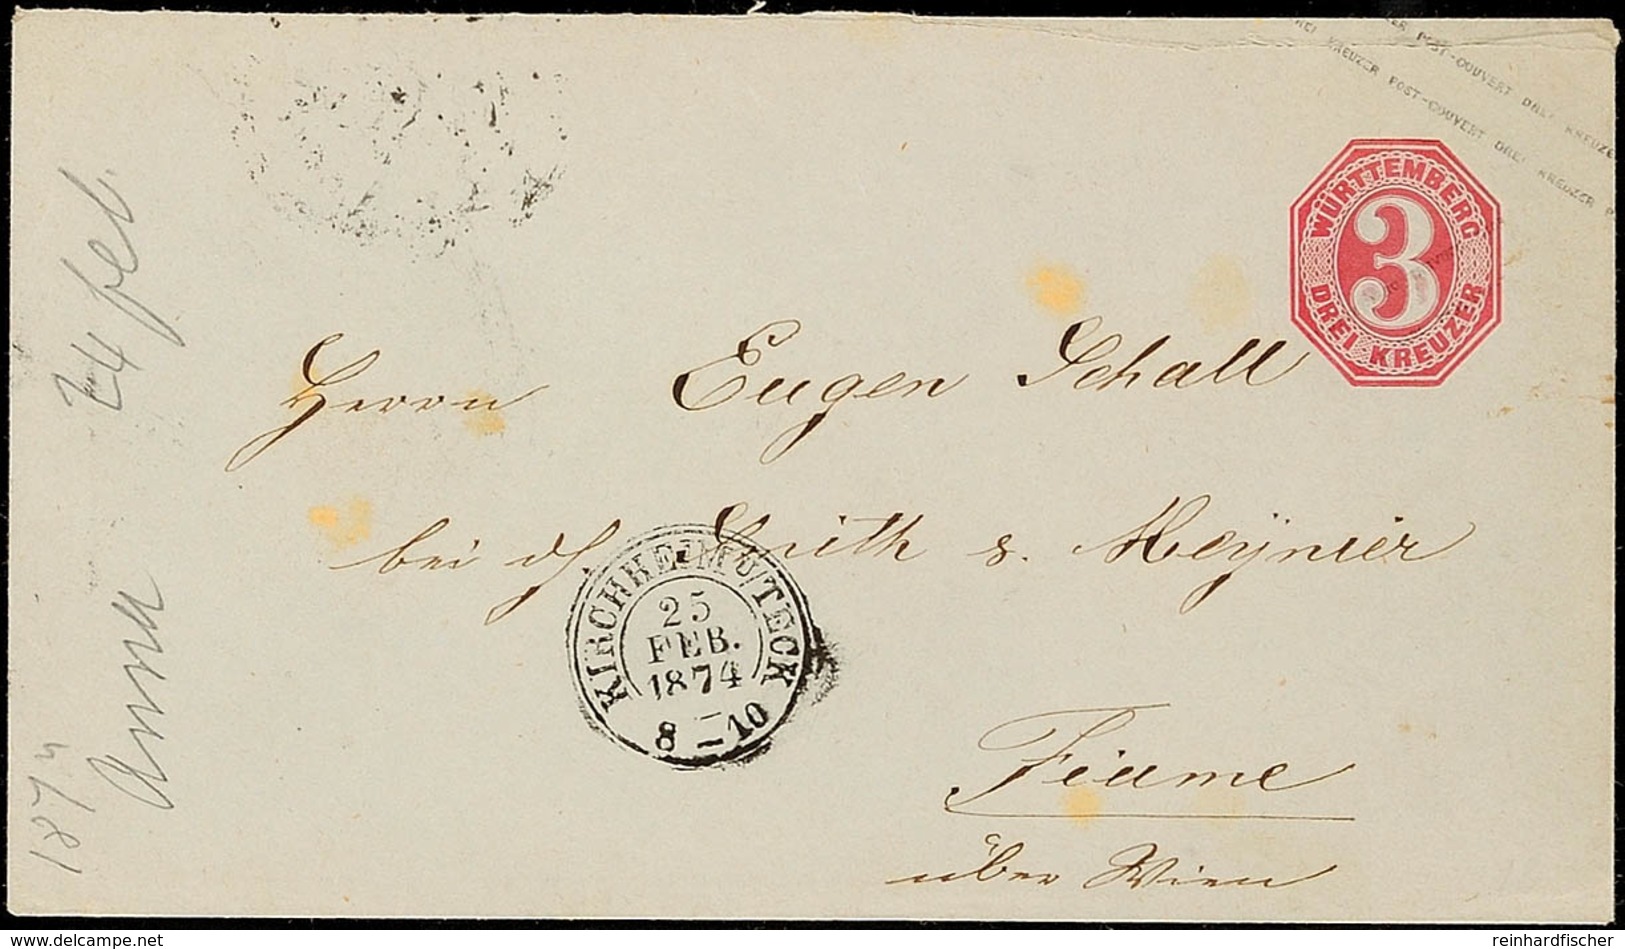 ER POST-COUVERT DREI KREUZE
DREI KREUZER POST-COUVERT DREI KREUZER P
WÜRTTEMBERG
3
DREI KREUZER
Herrn Eugen Schall
bei Smith & Meynier
Fiume
über Wien
KIRCHHEIM U/TECK
25
FEB.
1874
8-10
1874
24 feb.
Anna
delcampe.net
reinhardfischer